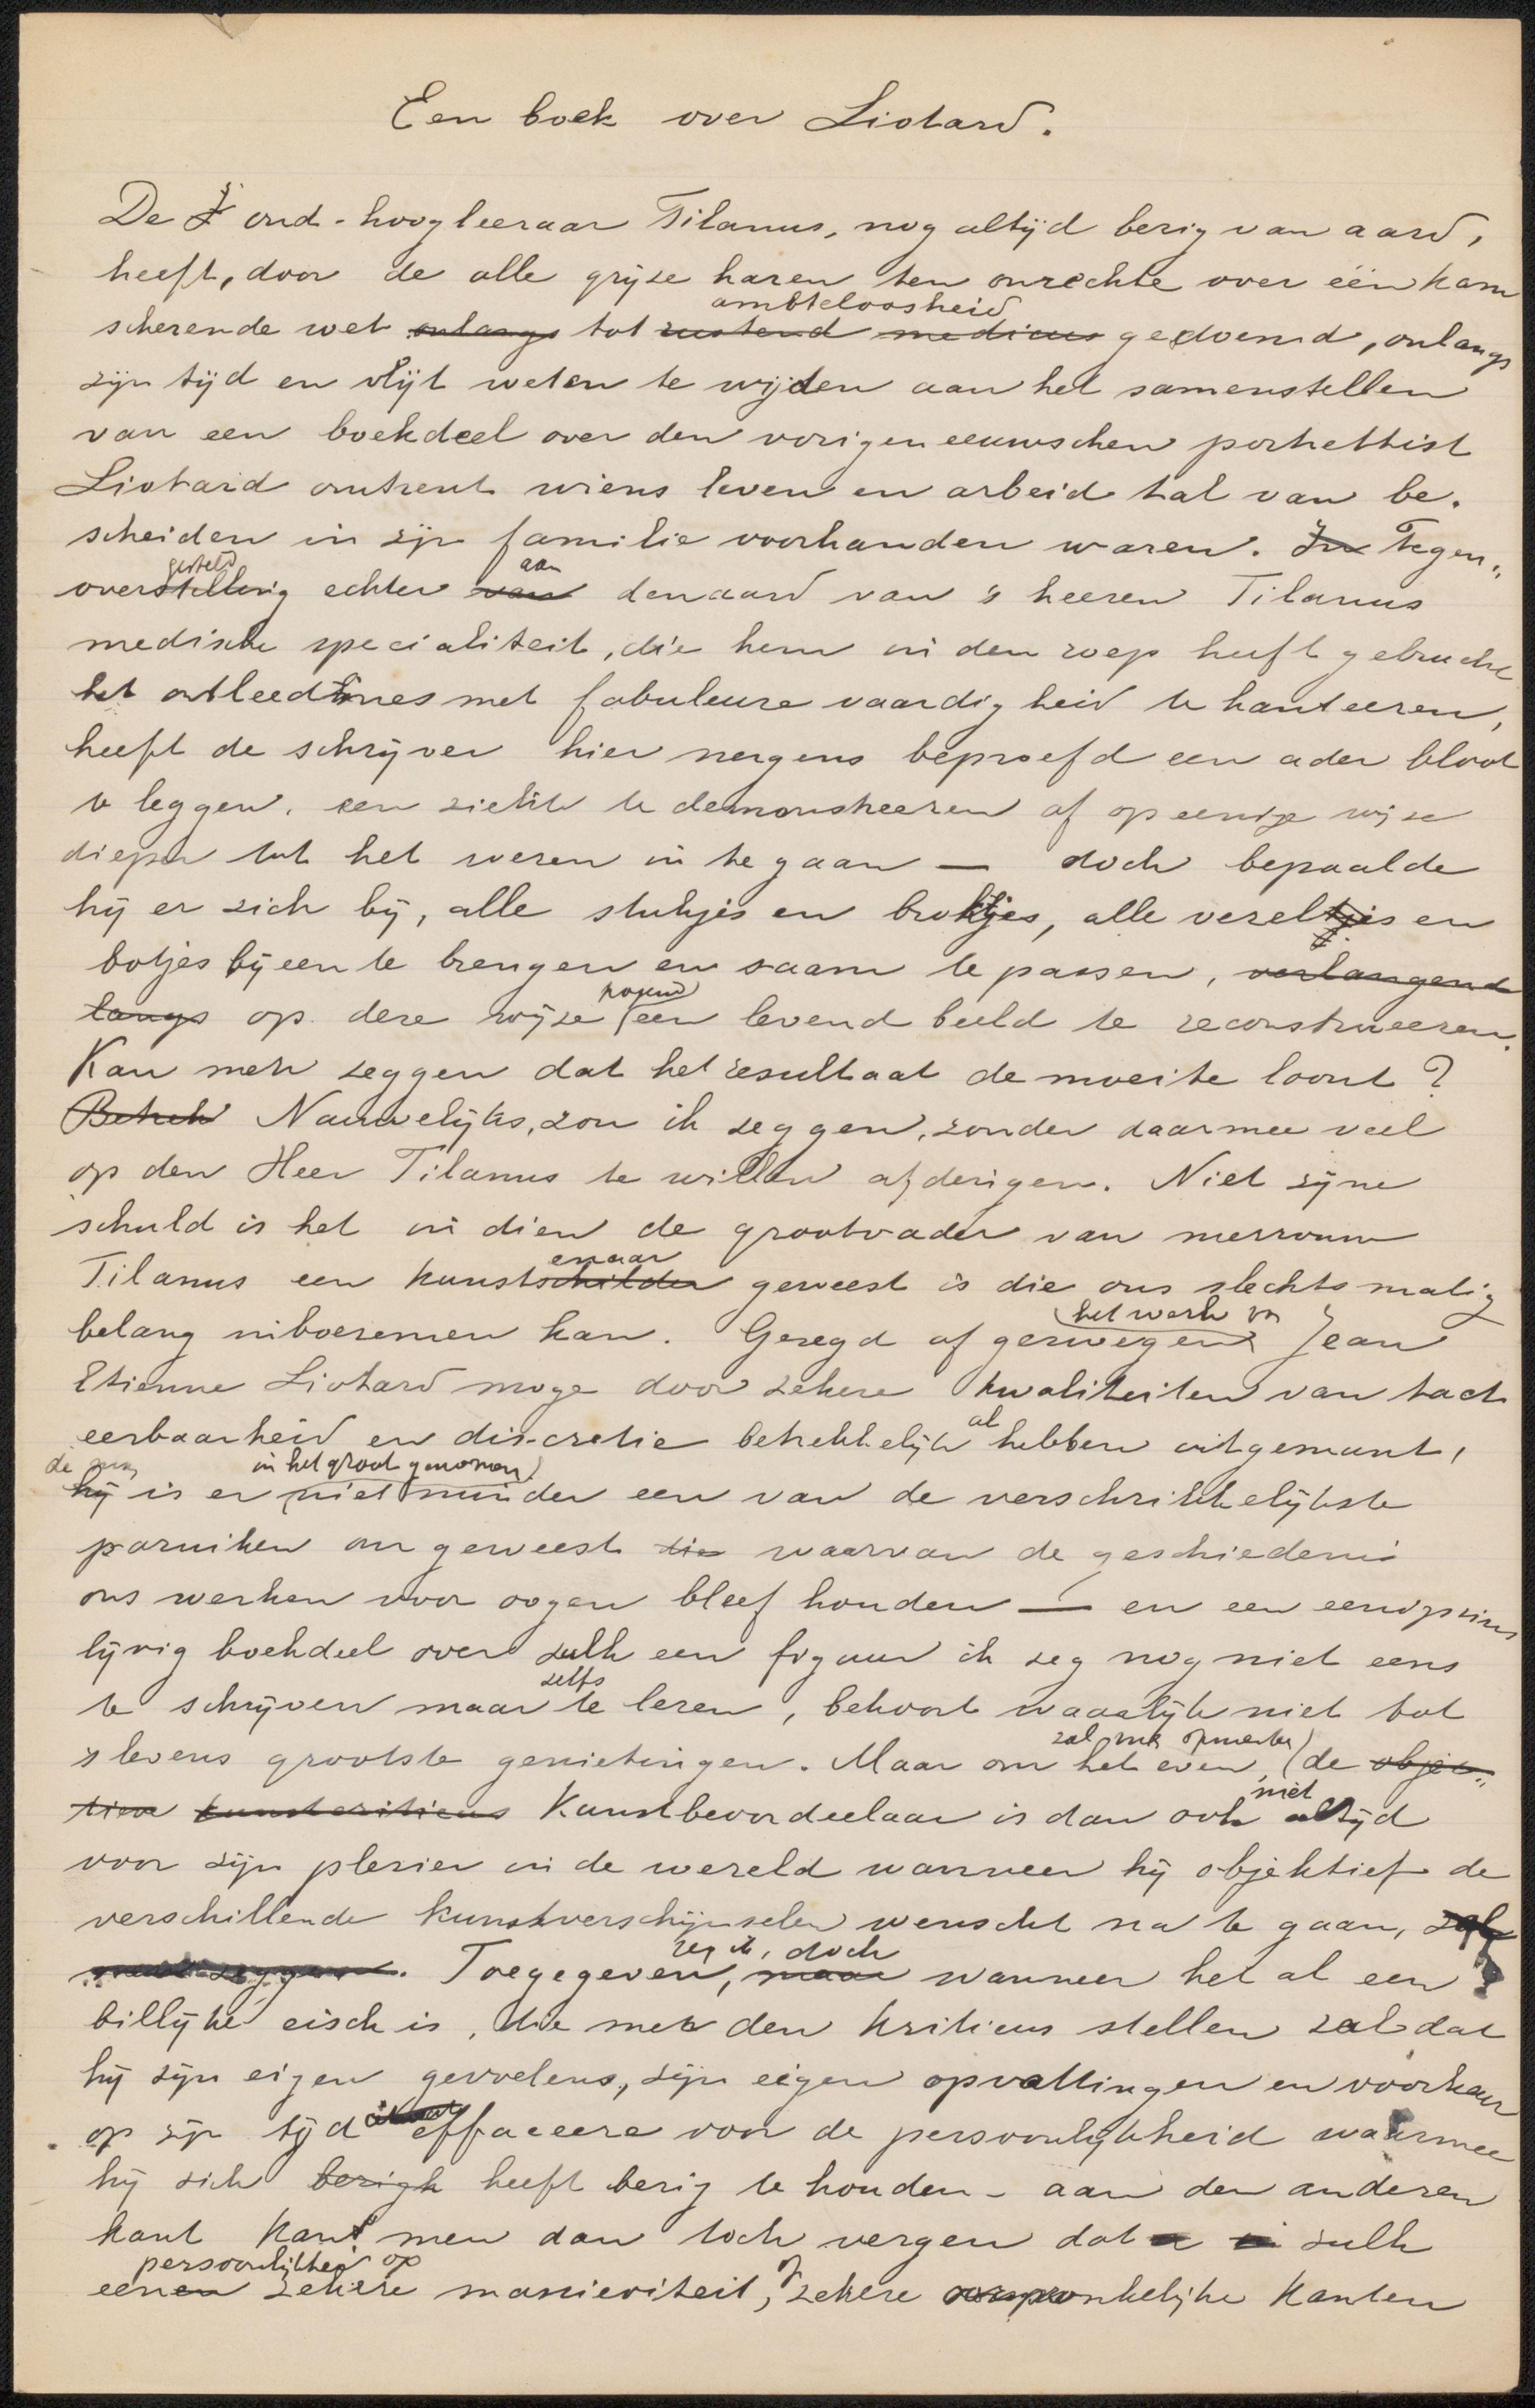 Een boek over Liotard.
De oud-hoogleeraar Tilanus, nog altijd bezig van aard,
heeft, door de alle grijze haren ten onrechte over één kam
ambteloosheid
scherende wet onlangs tot rustend medicus gedoemd, onlangs
zijn tijd en vlijt weten te wijden aan het samenstellen
van een boekdeel over den vorigen eeuwschen portrettist
Liotard omtrent wiens leven en arbeid tal van be-
scheiden in zijn familie voorhanden waren. In Tegen-
gesteld aan
overstelling echter van den aard van 's heeren Tilanus
medische specialiteit, die hem in den roep heeft gebracht
het ontleedmes met fabuleuse vaardigheid te hanteeren,
heeft de schrijver hier nergens beproefd een ader bloot
te leggen, een ziekte te demonstreeren of op eenige wijze
dieper tot het wezen in te gaan — doch bepaalde
hij er zich bij, alle stukjes en brokjes, alle vezeltjes en
botjes bijeen te brengen en saam te passen, verlangend
pogend
langs op deze wijze een levend beeld te reconstrueeren.
Kan men zeggen dat het resultaat de moeite loont?
Betrek Nauwelijks, zou ik zeggen, zonder daarmee veel
op den Heer Tilanus te willen afdingen. Niet zijne
schuld is het indien de grootvader van mevrouw
enaar
Tilanus een kunstschilder geweest is die ons slechts matig
het werk van
belang inboezemen kan. Gezegd of gezwegen Jean
Etienne Liotard moge door zekere kwaliteiten van tact
al
eerbaarheid en discretie betrekkelijk hebben uitgemunt,
de man in het groot genomen
hij is er niet minder een van de verschrikkelijkste
paruiken om geweest die waarvan de geschiedenis
ons werken voor oogen bleef houden — en een eenigszins
lijvig boekdeel over zulk een figuur ik zeg nog niet eens
zelfs
te schrijven maar te lezen, behoort waarlijk niet tot
's levens grootste genietingen. Maar om het even, de objec-
zal men opmerken
niet
tieve kunstcriticus Kunstbeoordeelaar is dan ook altijd
voor zijn plezier in de wereld wanneer hij objektief de
verschillende kunstverschijnselen wenscht na te gaan, zal
zeg ik, doch
men zeggen. Toegegeven, maar wanneer het al een
billijke eisch is, die men den kriticus stellen zal dat
hij zijn eigen gevoelens, zijn eigen opvattingen en voorkeur
op zijn tijd effaceere voor de persoonlijkheid waarmee
hij zich bezigh heeft bezig te houden - aan den anderen
kant kan men dan toch vergen dat zulk
persoonlijkheid op
eenen zekere massieviteit, of zekere oorspronkelijke kanten